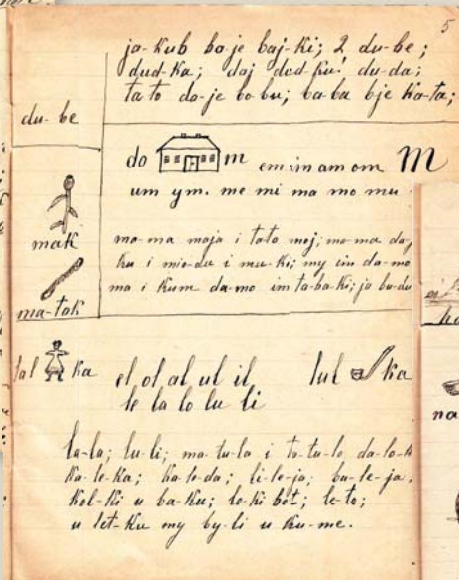 5
ja-kub ba-je baj-ki; 2 du-be;
dud-ka; daj dud-ku! du-da;
ta-to da-je bo-bu; ba-ba bje ka-ta;
du-be
do m em im am om M
um ym. me mi ma mo mu
mak
ma-ma maja i tato moj; ma-ma daj
ku i mio-du i mu-ki; my im da-mo
ma i kum da-mo im ta-ba-ki; ja bu-du
ma-tak
lal ka el ol al ul il lul ka
le la lo lu li
la-la; lu-li; ma-tu-la i ta-tu-lo da-lo
ka-le-ka; ko-lo-da; li-le-ja; ba-le-ja,
kol-ki u ba-ku; le-ki bot; le-to;
u let-ku my by-li u ku-me.
na